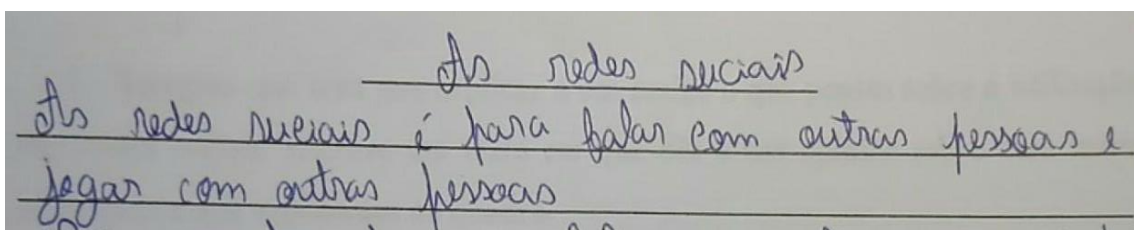 As redes suciais
As redes suciais é para falar com outras pessoas e
jogar com outras pessoas